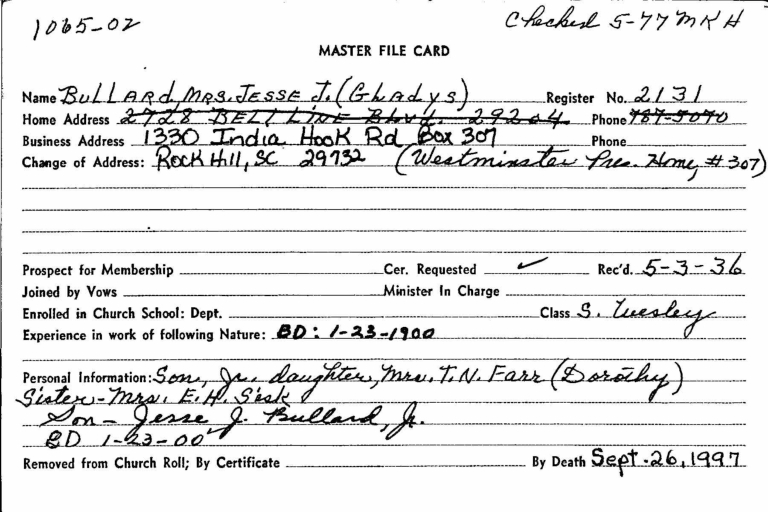 1065-02
Checked 5-77 MKH
MASTER FILE CARD
Name Bullard, Mrs. Jesse J. (Gladys) Register No. 2131
Home Address 2728 Bell Line Blvd. 29204 Phone 787-5070
Business Address 1330 India Hook Rd Box 307 Phone
Change of Address: Rock Hill, SC 29732 (Westminster Pres. Home, #307)
Prospect for Membership Cer. Requested ✓ Rec'd. 5-3-36
Joined by Vows Minister In Charge
Enrolled in Church School: Dept. Class S. Wesley
Experience in work of following Nature: BD: 1-23-1900
Personal Information: Son, Jr. daughter, Mrs. T.N. Farr (Dorothy)
Sister-Mrs. E.H. Sisk
Son- Jesse J. Bullard, Jr.
BD 1-23-00
Removed from Church Roll; By Certificate By Death Sept. 26, 1997